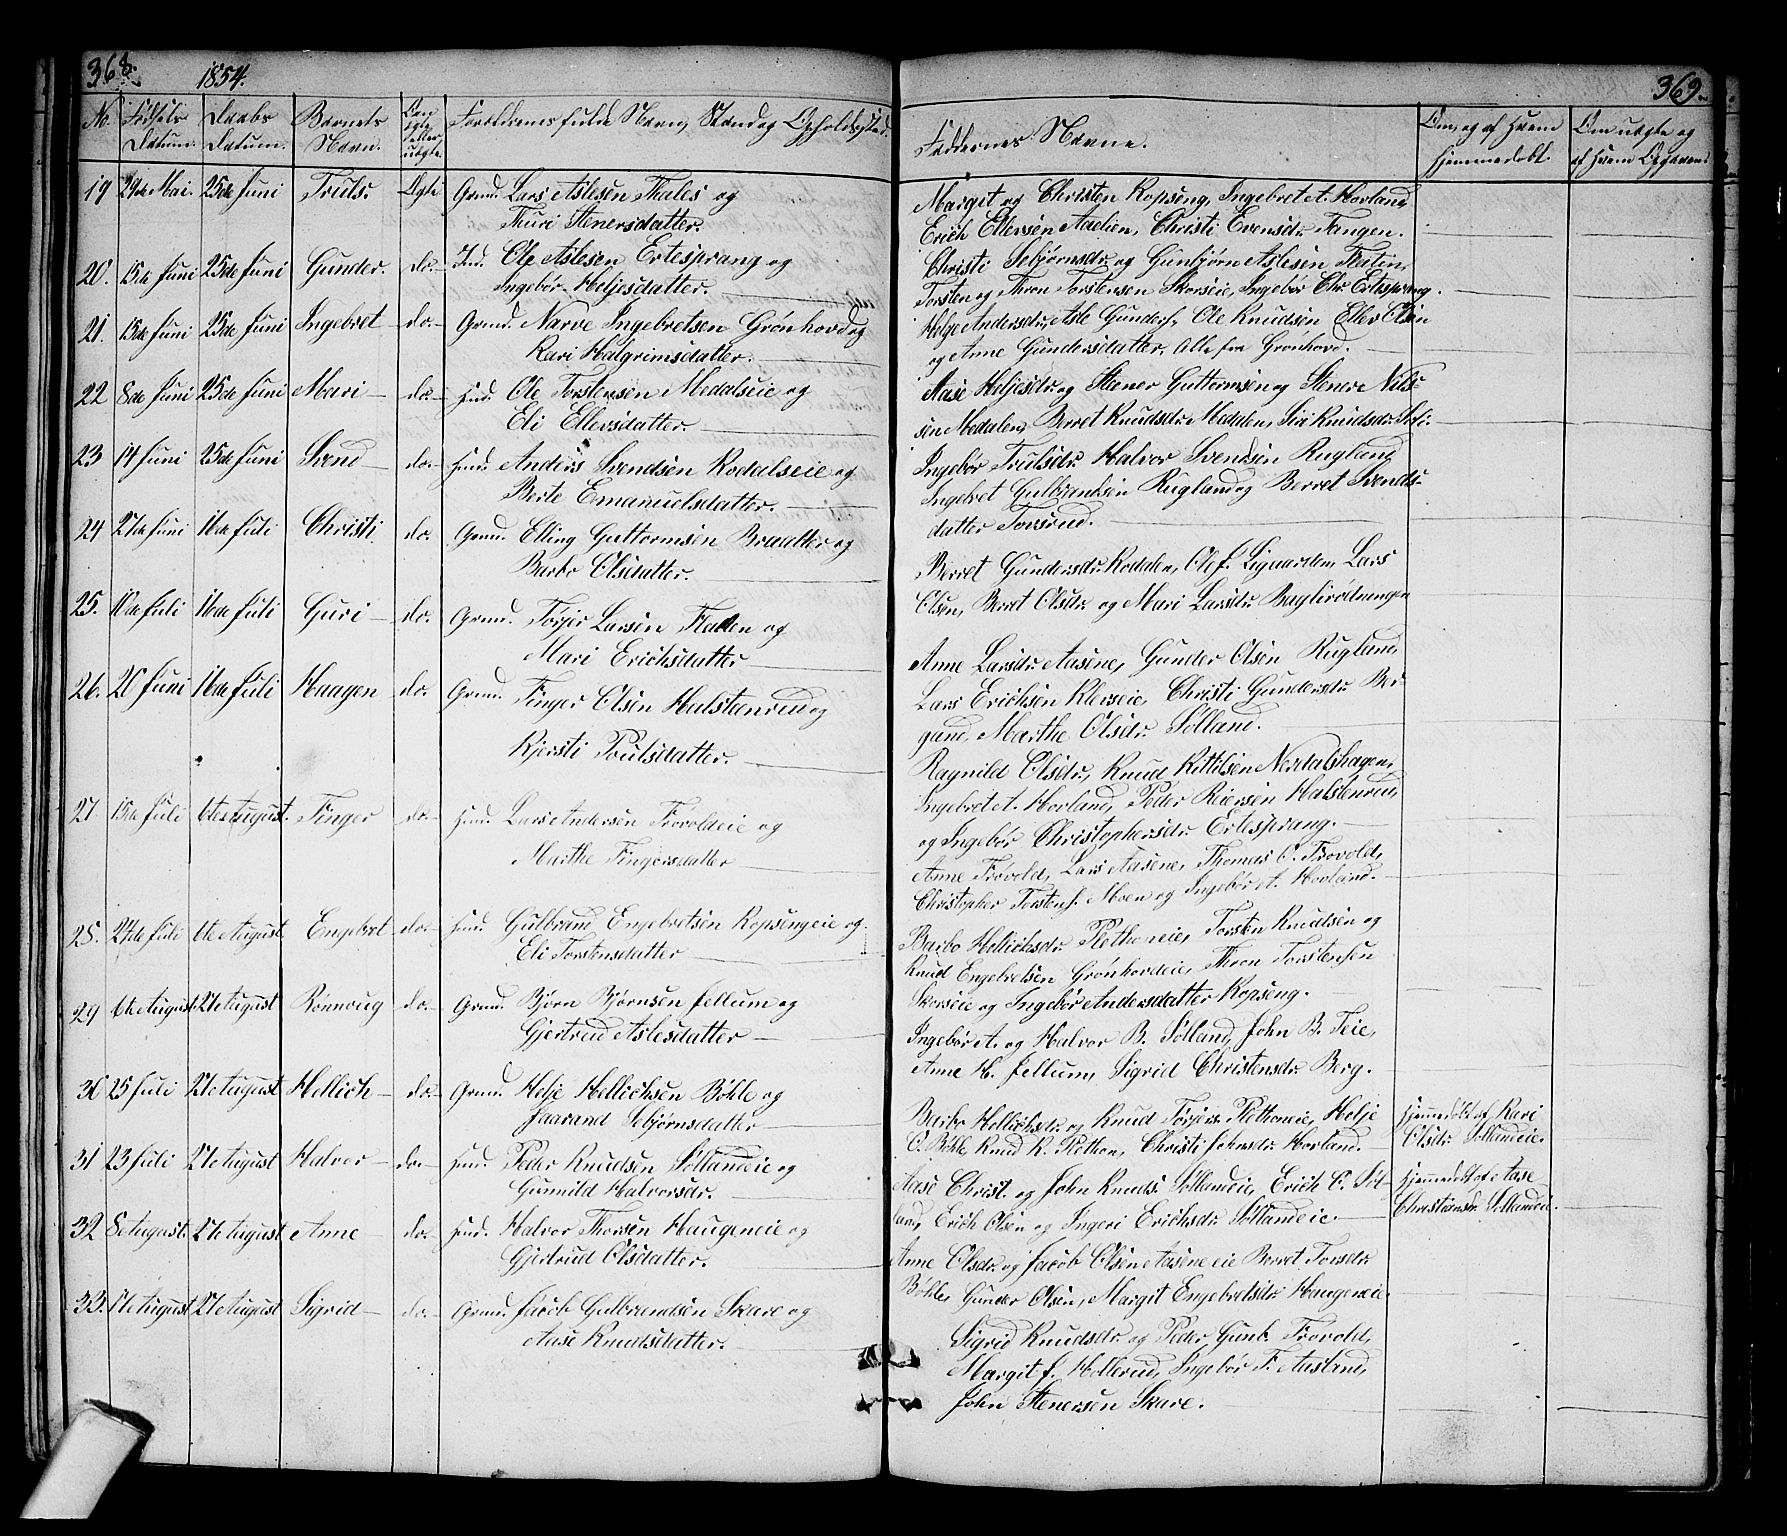 368. 1854. 369.
No. Fødsels Datum. Daabs Datum. Barnets Navn. Om ægte eller uægte. Forældrenes fulde Navn, Stand og Opholdssted. Faddernes Navne. Om, og af Hvem hjemmedøbt. Om uægte og af Hvem Opgivens
19 29de Mai. 25de Juni Truls. Ægte Grmd. Lars Aslesen Thales og
Thuri Stenersdatter.
Margit og Christen Kopseng, Ingebret A. Hovland,
Erich Ellevsen Aaslien, Christi Evensdr. Tangen.
20. 15de Juni 25de Juni Gunder. do. Ind. Ole Aslesen Ertesprang og
Ingebør Heljesdatter.
Christi Sebjørnsdr. og Gunbjørn Aslesen Flatin,
Torsten og Thron Torstensen Skorseie, Ingebør Chr. Ertesprang.
21. 15de Juni 25de Juni Ingebret do. Grmd. Narve Ingebretsen Grønhovd og
Kari Halgrimsdatter.
Helge Andersdr, Asle Gunders., Ole Knudsen Ellev Olsen
og Anne Gundersdatter, Alle fra Grønhovd.
22 8de Juni 25de Juni Mari do. Hud. Ole Torstensen Medalseie og
Eli Ellevsdatter
Aase Heljesdr. og Stener Guttormsen og Stener Nils-
sen Medalen, Berret Knudsdr. Medalen, Siri Knudsdr.
23 14 Juni 25de Juni Svend do. Hud. Anders Svendsen Rodalseie og
Berte Emanuelsdatter.
Ingebør Trulsdr. Halvor Svendsen Rugland
Ingebret Gulbrandsen Rugland og Berret Svends-
datter Torsrud.
24 27de Juni 16de Juli Christi do. Grmd. Elling Guttormsen Braatter og
Barbo Olsdatter.
Berret Gundersdr. Rodalen, Ole J. Liquarden, Lars
Olsen, Berret Olsdr. og Mari Larsdr. Baglirødningen
25. 10de Juli 16de Juli Guri do. Grmd. Torjer Larsen Fladen og
Mari Erichsdatter
Anne Larsdr. Aasene, Gunder Olsen Rugland,
Lars Erichsen Klevseie, Christi Gundersdr. Ber-
gund, Marthe Olsdr. Solland.
26. 20 Juni 16de Juli Haagen do. Grmd. Finger Olsen Halstenrud og
Kjersti Poulsdatter.
Ragnild Olsdr., Knud Kittilsen Nordalshagen,
Ingebret A. Hovland, Peder Reiersen Halstenrud,
og Ingebør Christophersdr. Ertesprang.
27 15de Juli 6te August. Finger do. Huud. Lars Andersen Frovoldeie og
Marthe Fingersdatter
Anne Frøvold, Lars Aasene, Thomas C. Frovold,
Christopher Torstens. Moen og Ingebør A. Hovland.
28. 27de Juli 6te August. Engebret do. Huud. Gulbrand Engebretsen Kopsengeie og
Eli Torstensdatter
Barbo Hellichsdr. Plethoneie, Torsten Knudsen og
Knud Engebretsen Grønhovdeie, Thron Torstensen
Skorseie og Ingebør Andersdatter Kopseng.
29 6te August. 27de August Rønnoug do. Grmd. Bjørn Bjørnsen Jellum og
Gjertrud Aslesdatter
Ingebør A. og Halvor B. Solland, John B. Teie,
Anne H. Jellum, Sigrid Christensdr. Berg.
30 25 Juli 27de August Hellich do. Grmd. Helje Hellichsen Bøhle og
Jaarand Sebjørnsdatter
Barbo Hellichsdr. og Knud Torjers. Plethoneie, Helje
O. Bøhle Knud K. Plethon, Christi Johnsdr. Hovland.
Hjemmedøbt af Kari
Olsdr. Sollandeie.
31 23 Juli 27de August Halvor do. Huud. Peder Knudsen Sollandeie og
Gunnild Halvorsdr.
Aase Christ. og John Knuds. Sollandeie, Erich O. Sol-
land, Erich Olsen og Ingeri Erichsdr. Sollandeie.
Hjemmedøbt af Aase
Christiansdr. Sollandeie.
32 8de August. 27de August Anne do. Huud. Halvor Thorsen Haugeneie og
Gjertrud Olsdatter.
Anne Olsdr. og Jacob Olsen Aaseneeie Berret Torsdr.
Bøhle, Gunder Olsen, Margit Engebretsdr. Haugeneie.
33. 17de August 27de August Sigrid do. Grmd. Jacob Gulbrandsen Skare og
Aase Knudsdatter.
Sigrid Knudsdr. og Peder Gunb. Frovold,
Margit J. Hellerud, Ingebør F. Aasland,
John Stenersen Skare.